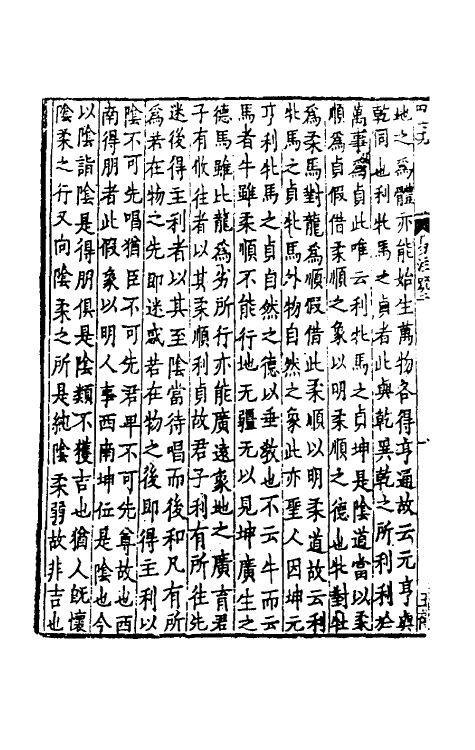 地之爲體亦能始生萬物各得亨通故云元亨與
乾同也利牝馬之貞者此與乾異乾之所利利於
萬事爲貞此唯云利牝馬之貞坤是陰道當以柔
順爲貞假借柔順之象以明柔順之德也牝對牡
爲柔馬對龍爲順假借此柔順以明柔道故云利
牝馬之貞牝馬外物自然之象此亦聖人因坤元
亨利牝馬之貞自然之德以垂教也不云牛而云
馬者牛雖柔順不能行地无疆无以見坤廣生之
德馬雖比龍爲劣所行亦能廣遠象地之廣育君
子有攸往者以其柔順利貞故君子利有所往先
迷後得主利者以其至陰當待唱而後和凡有所
爲若在物之先即迷惑若在物之後即得主利以
陰不可先唱猶臣不可先君卑不可先尊故也西
南得朋者此假象以明人事西南坤位是陰也今
以陰詣陰是得朋俱是陰類不獲吉也猶人旣懷
陰柔之行又向陰柔之所是純陰柔弱故非吉也